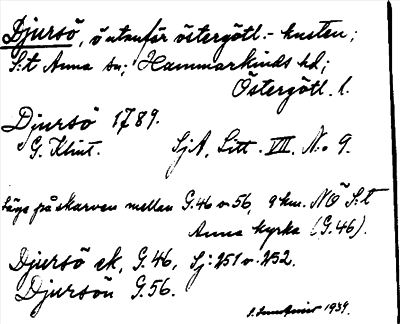 Djursö, ö utanför östergötl.-kusten;
S:t Anna sn; Hammarkinds hd;
Östergötl. l.
Djursö 1789.
G. Klint. SjA, Litt. VII. No 9.
Läge på skarven mellan G.46 o. 56, 9 km. NÖ S:t
Anna kyrka (G.46).
Djursö ek, G.46, Sj: 251 o. 252.
Djursön G.56.
1939.